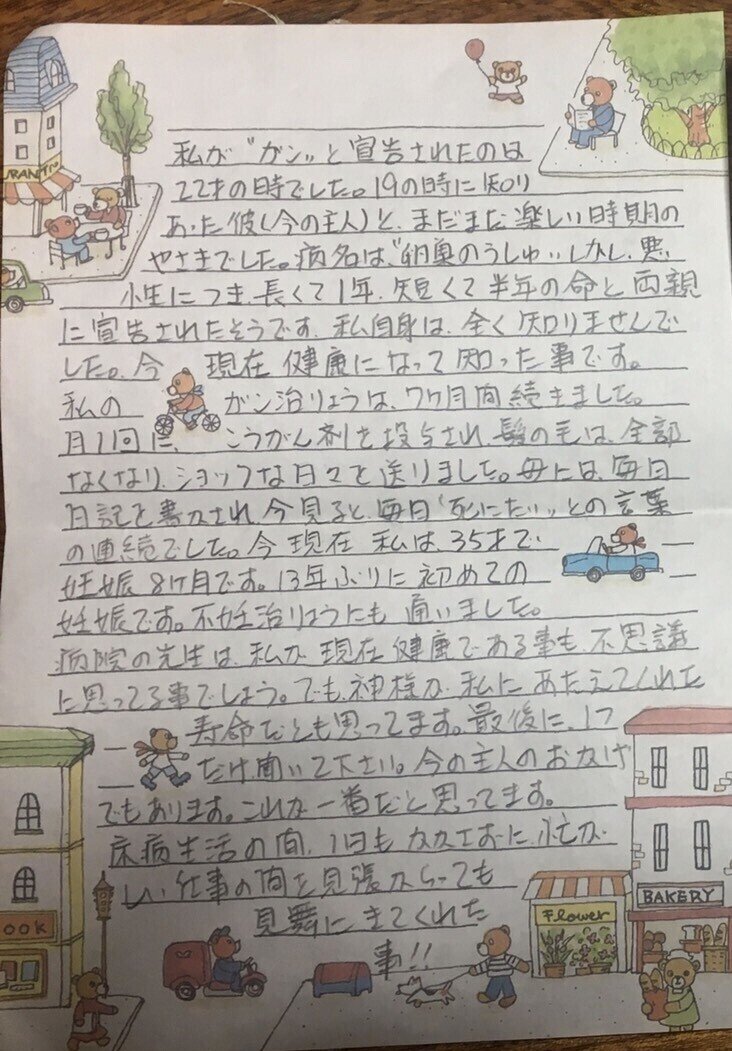 私が〝ガン〟と宣告されたのは
22才の時でした。19の時に知り
あった彼(今の主人)と、まだまだ楽しい時期の
やさきでした。病名は、〝卵巣のうしゅ〟しかし、悪
小生につき、長くて1年、短くて半年の命と両親
に宣告されたそうです。私自身は、全く知りませんで
した。今 現在 健康になって知った事です。
私の ガン治りょうは、7ケ月間続きました。
月1回に、こうがん剤を投与され、髪の毛は、全部
なくなり、ショックな日々を送りました。母には、毎日
日記を書かされ、今見ると、毎日〝死にたい〟との言葉
の連続でした。今現在 私は、35才で
妊娠 8ケ月です。13年ぶりに初めての
妊娠です。不妊治りょうにも 通いました。
病院の先生は、私が現在健康である事も、不思議
に思ってる事でしょう。でも、神様が、私に あたえてくれた
寿命だとも思ってます。最後に、1つ
だけ、聞いて下さい。今の主人のおかげ
でもあります。これが一番だと思ってます。
床病生活の間、1日も かかさずに、忙が
しい仕事の間を見張からっても
見舞にきてくれた
事!!
RANT
OOK
Flower
BAKERY